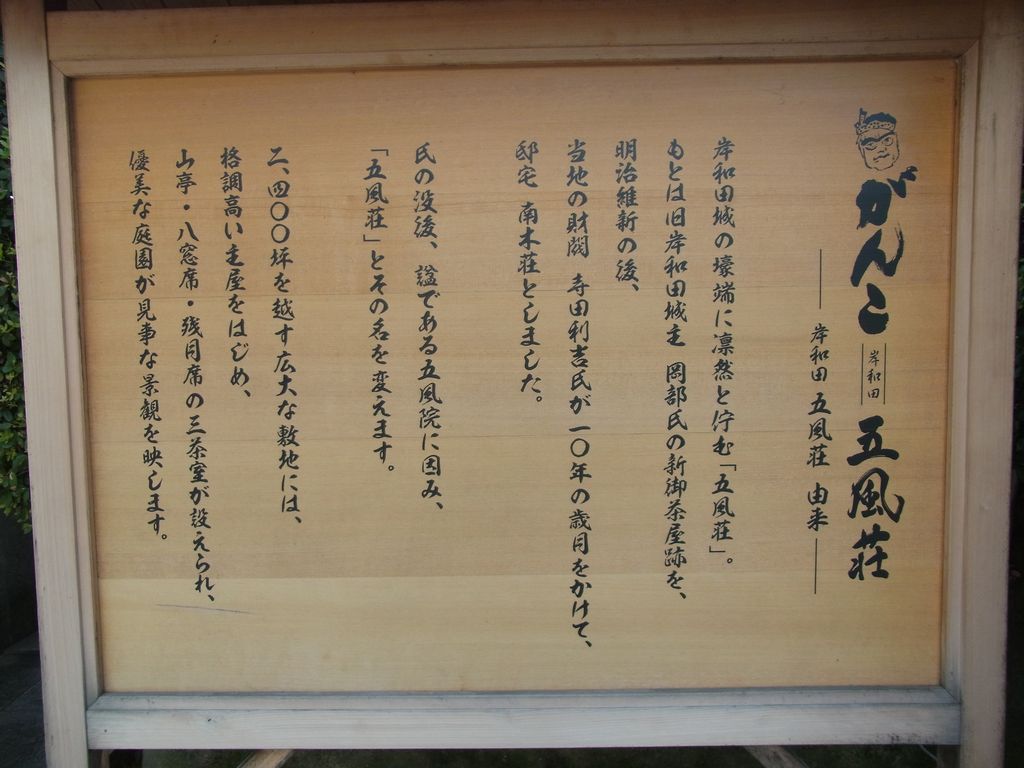 がんこ 岸和田 五風荘
岸和田 五風荘 由来
岸和田城の壕端に凛然と佇む「五風荘」。
もとは旧岸和田城主 岡部氏の新御茶屋跡を、
明治維新の後、
当地の財閥 寺田利吉氏が一〇年の歳月をかけて、
邸宅 南木荘としました。
氏の没後、諡である五風院に因み、
「五風荘」とその名を変えます。
二、四〇〇坪を越す広大な敷地には、
格調高い主屋をはじめ、
山亭・八窓席・残月席の三茶室が設えられ、
優美な庭園が見事な景観を映します。